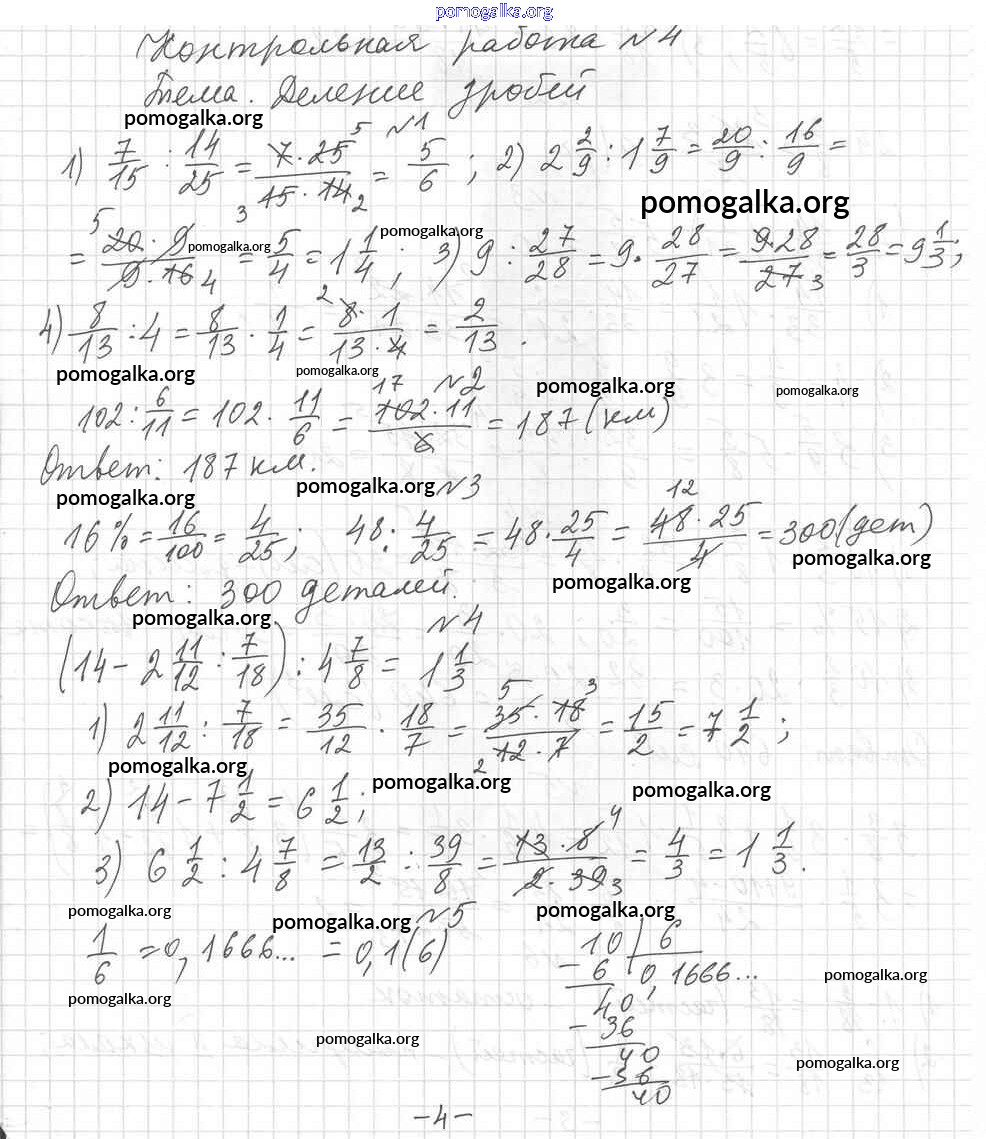 pomogalka.org
Контрольная работа №4
Тема. Деление дробей
pomogalka.org
№1
1) 7/15 : 14/25 = 7·25/15·14 = 5/6 ; 2) 2 2/9 : 1 7/9 = 20/9 : 16/9 =
pomogalka.org
= 20·9/9·16 = 5/4 = 1 1/4 ; 3) 9 : 27/28 = 9· 28/27 = 9·28/27 = 28/3 = 9 1/3 ;
pomogalka.org pomogalka.org
4) 8/13 : 4 = 8/13 · 1/4 = 8·1/13·4 = 2/13 .
pomogalka.org pomogalka.org pomogalka.org pomogalka.org
№2
102 : 6/11 = 102 · 11/6 = 102·11/6 = 187 (км)
Ответ: 187 км.
pomogalka.org pomogalka.org
№3
16% = 16/100 = 4/25 ; 48 : 4/25 = 48 · 25/4 = 48·25/4 = 300 (дет)
pomogalka.org pomogalka.org
Ответ: 300 деталей.
pomogalka.org
№4
(14 - 2 11/12 : 7/18) : 4 7/8 = 1 1/3
1) 2 11/12 : 7/18 = 35/12 · 18/7 = 35·18/12·7 = 15/2 = 7 1/2 ;
pomogalka.org pomogalka.org pomogalka.org
2) 14 - 7 1/2 = 6 1/2 ;
3) 6 1/2 : 4 7/8 = 13/2 : 39/8 = 13·8/2·39 = 4/3 = 1 1/3 .
pomogalka.org pomogalka.org pomogalka.org
№5
1/6 = 0,1666... = 0,1(6)
10 | 6
- 6 0,1666...
40
- 36
40
- 36
40
pomogalka.org pomogalka.org
pomogalka.org pomogalka.org
-4-